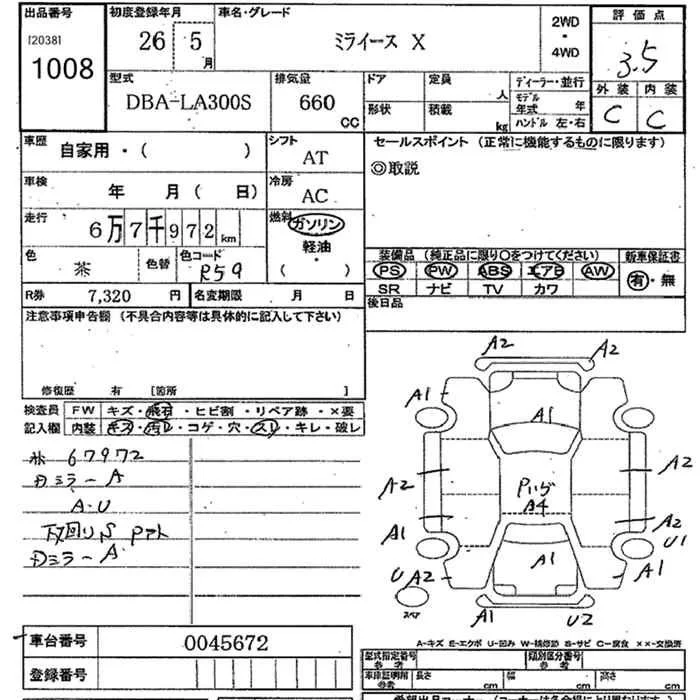 出品番号 初度登録年月 車名・グレード 2WD 評価点
[2038] 26 5 月 ミライース X ・ 3.5
1008 4WD
型式 排気量 ドア 定員 ディーラー・並行 外装 内装
DBA-LA300S 660 人 モデル年式 年 C C
CC 形状 積載 kg ハンドル 左・右
車歴 シフト セールスポイント (正常に機能するものに限ります)
自家用・( ) AT ◎取説
車検 冷房
年 月( 日) AC
走行 燃料
6万7千972km ガソリン
軽油
色 色替 色コード ・ 装備品 (純正品に限り○をつけてください) 新車保証書
茶 R59 ( ) PS PW ABS エアB AW 有・無
SR ナビ TV カワ
R券 7,320 円 名変期限 月 日 後日品
注意事項申告欄 (不具合内容等は具体的に記入して下さい)
修復歴 有 [箇所 ]
検査員 FW キズ・飛石・ヒビ割・リペア跡・×要
記入欄 内装 キズ・汚レ・コゲ・穴・スレ・キレ・破レ
67972
ミラーA
A・U
下回りS
ミラーA
A2 A2
A1 A1
A2 A2
A4
A1 A2
U1
A1
U A2 A1
スペア
A1 U2
A-キズ E-エクボ U-凹み W-補修跡 S-サビ C-腐食 ××-交換済
車台番号 0045672
型式指定番号 参考 類別区分番号 参考
登録番号 車検証明欄 参考 長さ cm 幅 cm 高さ cm